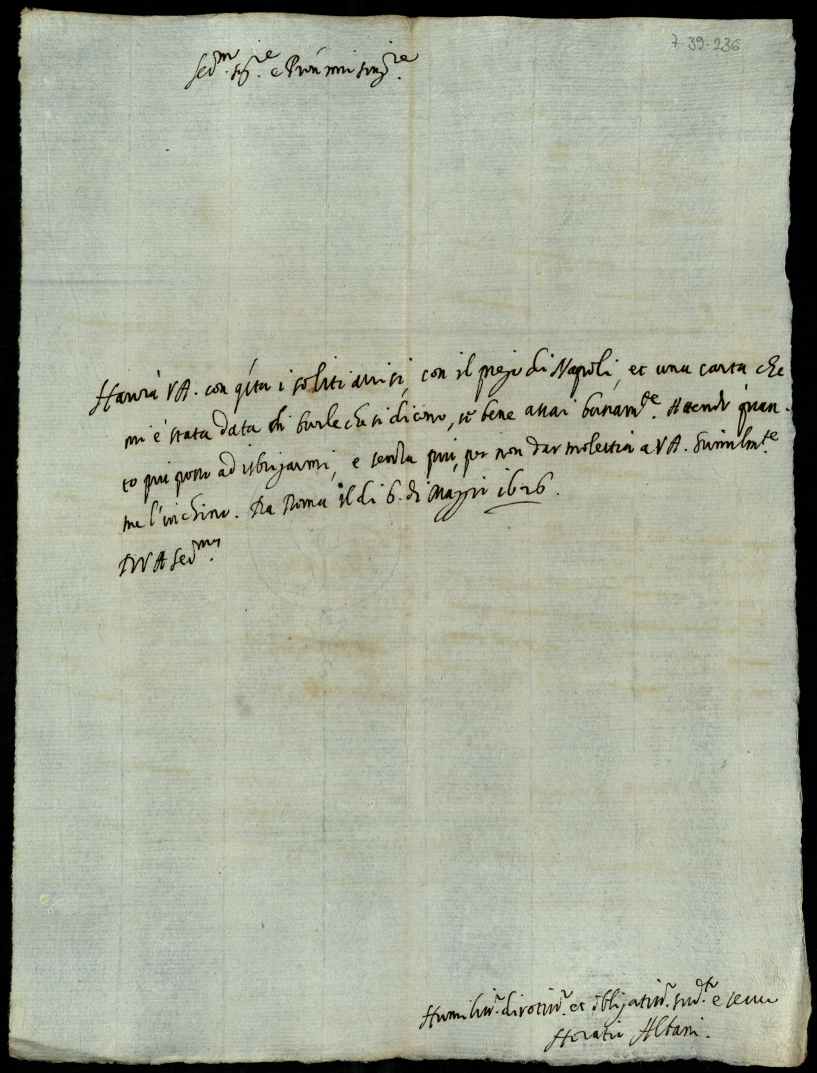 7-39-236
Ser.mo sig.re e Pron mio sing.re
Havrà V A. con q̃sta i soliti avvisi, con il piego di Napoli, et una carta che
mi è stata data di burle che si dicono, se bene assai bassam.te. Attendo quan-
to più posso ad isbrigarmi, e senza più, per non dar molestia a V A. humilm.te
me l'inchino. Da Roma il dì 6. di Maggio 1626.
D V A Ser.ma
Humiliss.o divotiss.o et obligatiss.o sud.to e servo
Horatio Albani.